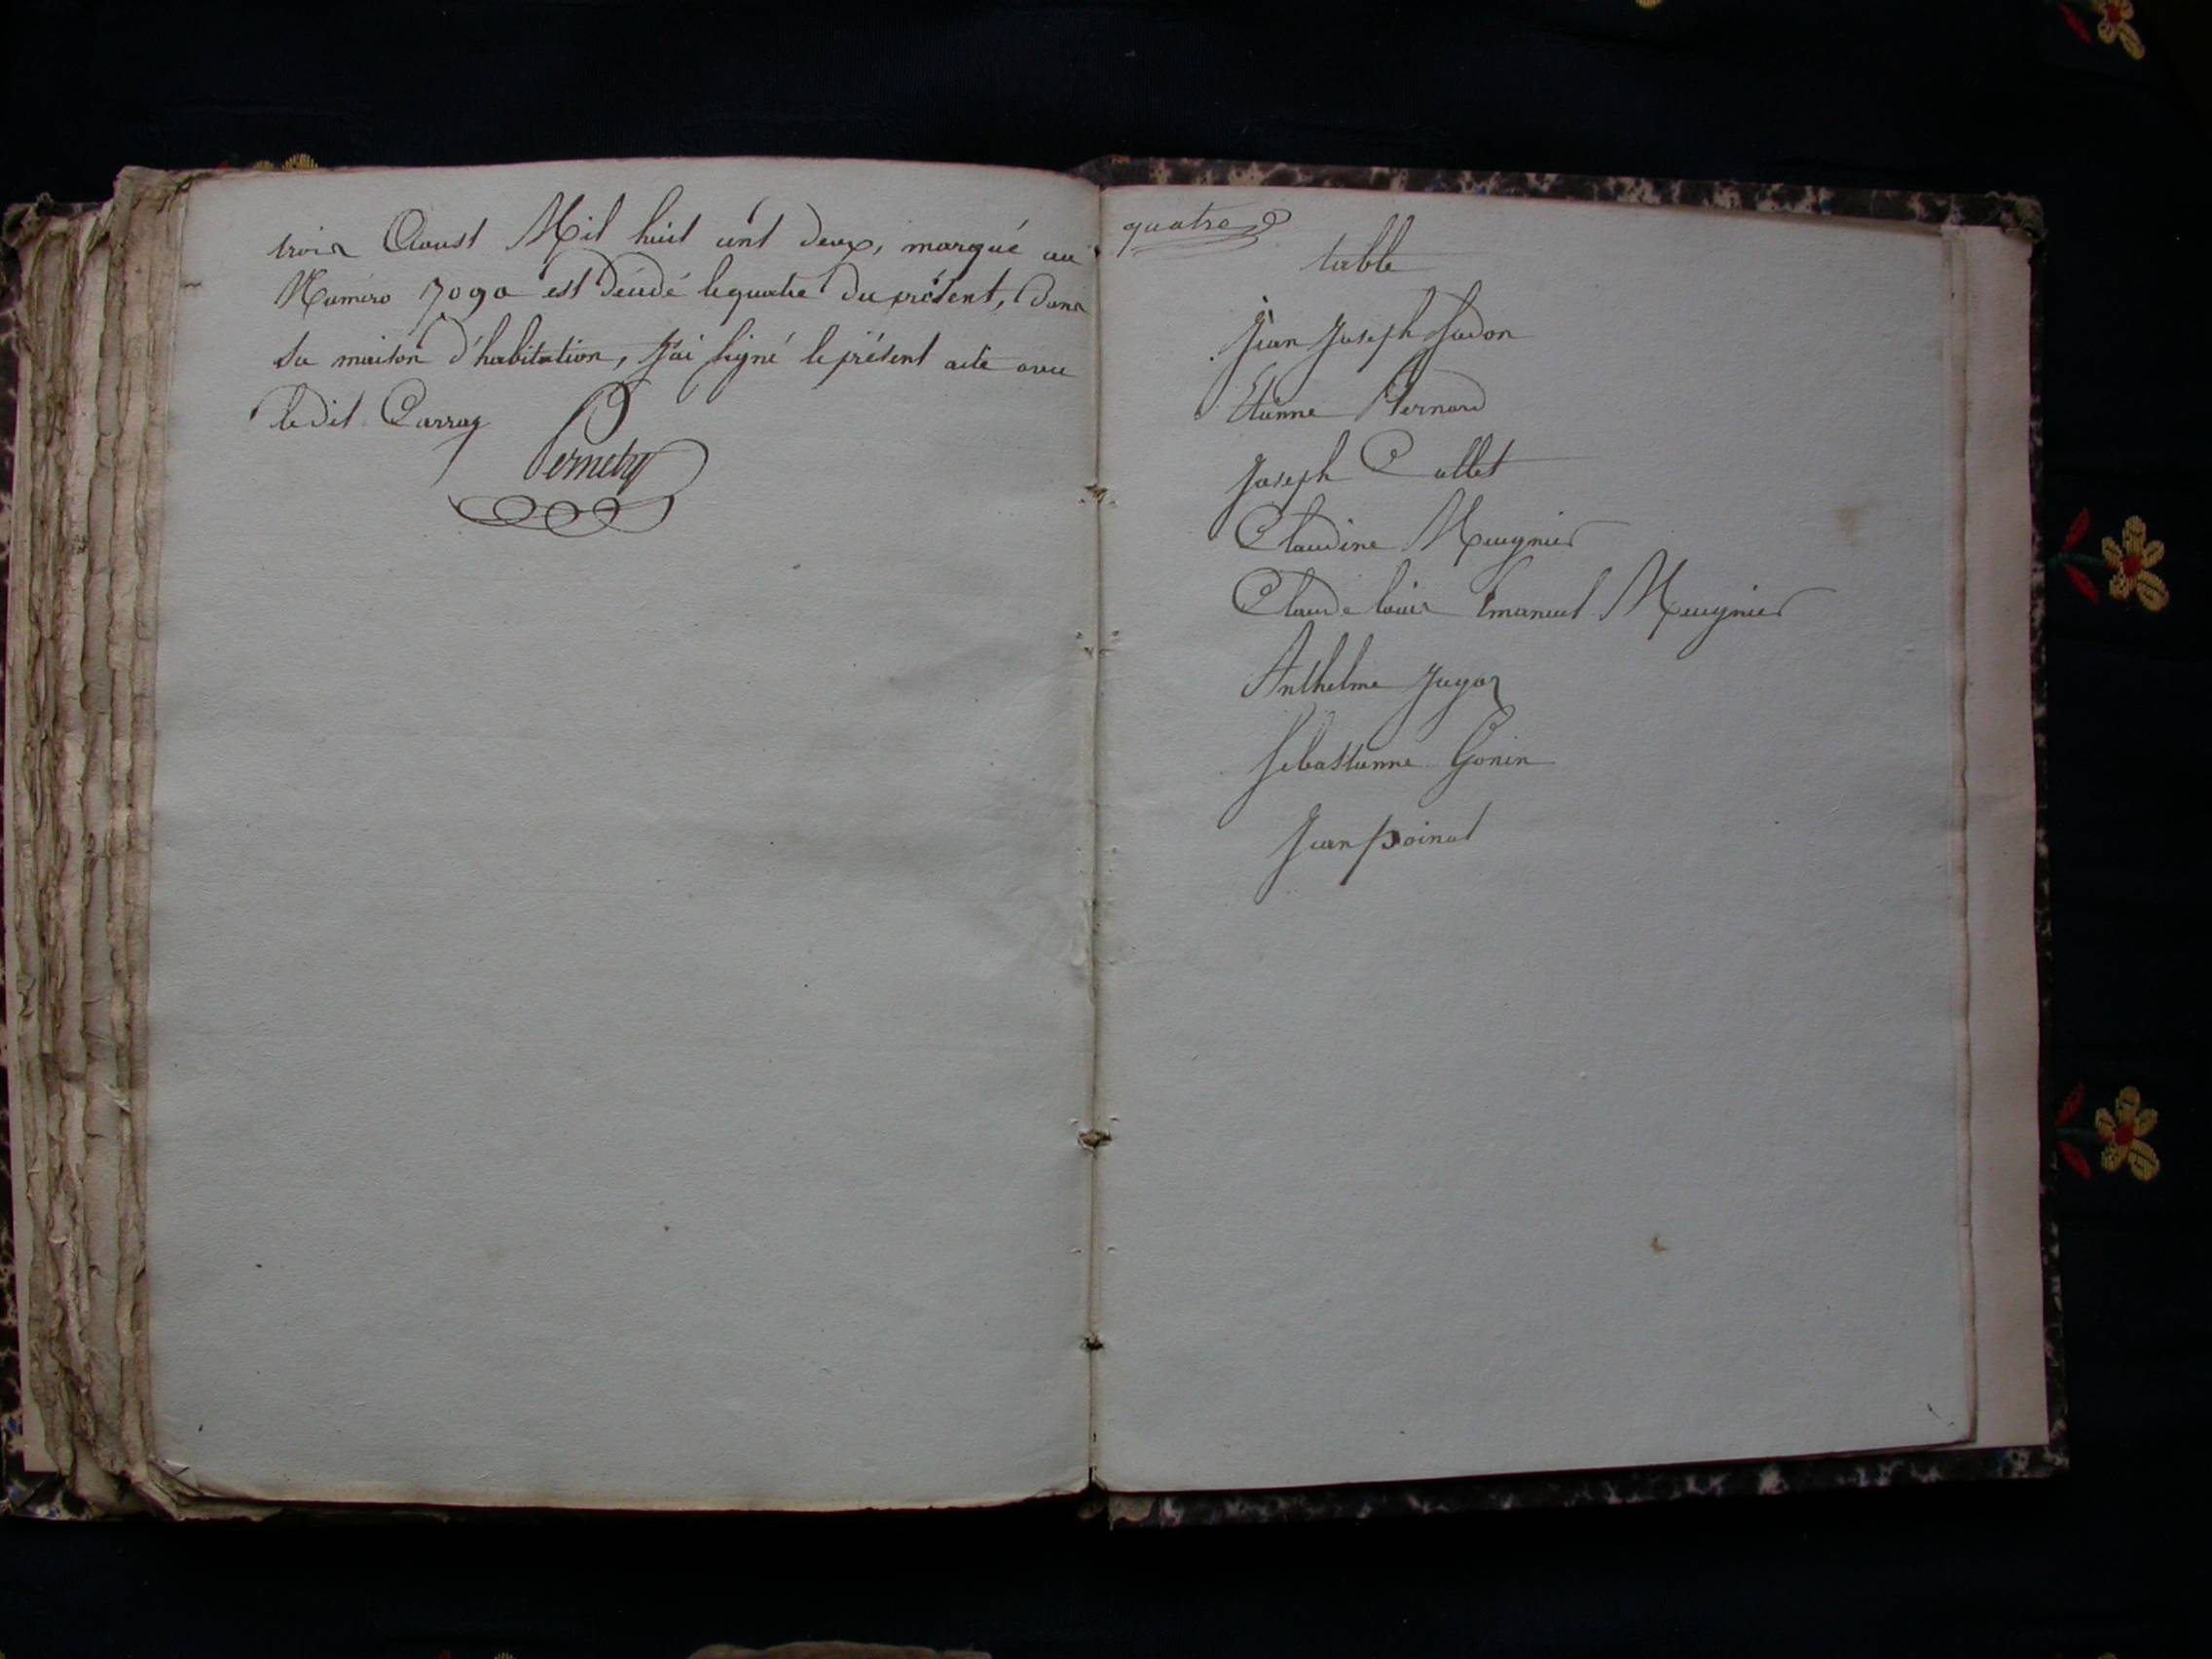 trois Aoust Mil huit cent deux, marqué au
Numéro 7090 est décédé le quatre du présent, dans
sa maison d'habitation, J'ai signé le présent acte avec
le dit Carraz
Pernety
quatre
table
Jean Joseph Sadon
Etienne Bernard
Joseph Collet
Claudine Meugnier
Claude louis Emanuel Meugnier
Anthelme
Sebastienne Gonin
Jean poinet